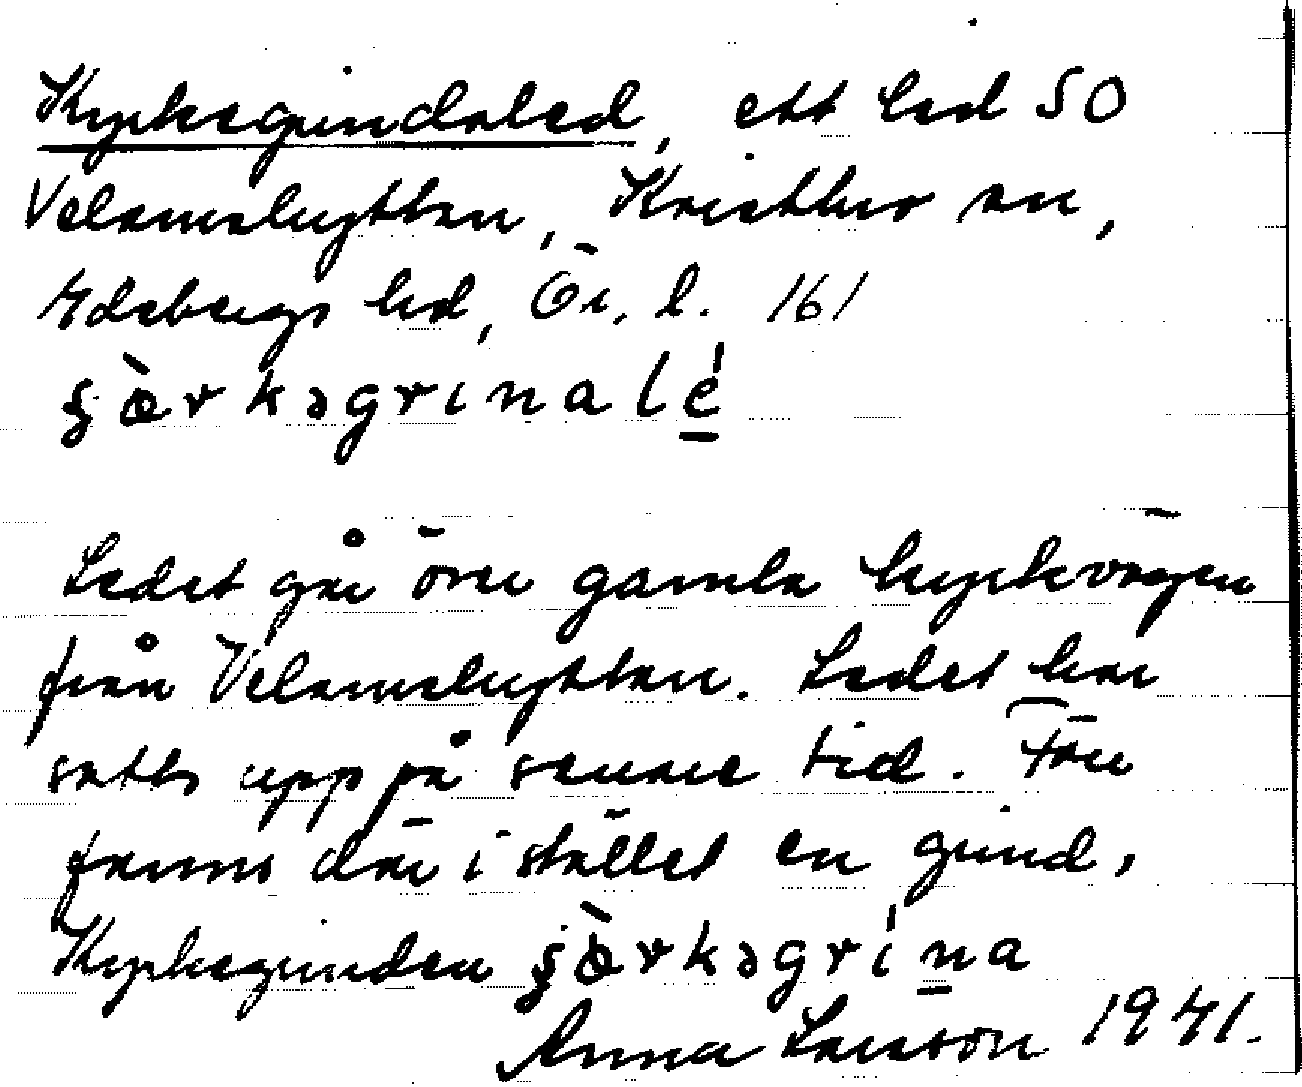 Kyrkegrindaled, ett led SO
Velamslyckan, Kristin
Edsbergs hd, Ör. l. 161
Ledet går över gamla kyrkvägen
från Velamslyckan. Ledet har
satts upp på senare tid. Förr
fanns där i stället en grind,
Kyrkegrinden
Anna Larsson 1941.